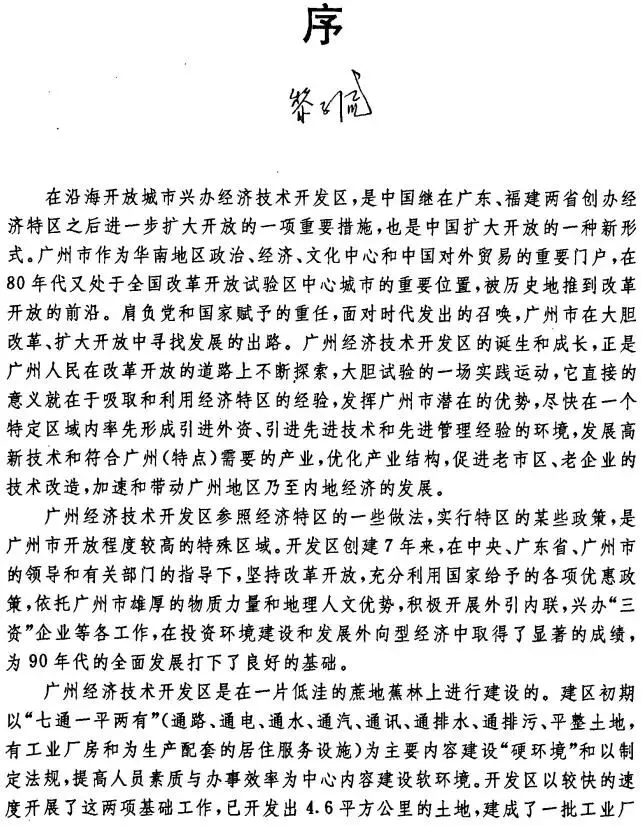 序
黎子流
在沿海开放城市兴办经济技术开发区,是中国继在广东、福建两省创办经
济特区之后进一步扩大开放的一项重要措施,也是中国扩大开放的一种新形
式。广州市作为华南地区政治、经济、文化中心和中国对外贸易的重要门户,在
80年代又处于全国改革开放试验区中心城市的重要位置,被历史地推到改革
开放的前沿。肩负党和国家赋予的重任,面对时代发出的召唤,广州市在大胆
改革、扩大开放中寻找发展的出路。广州经济技术开发区的诞生和成长,正是
广州人民在改革开放的道路上不断探索,大胆试验的一场实践运动,它直接的
意义就在于吸取和利用经济特区的经验,发挥广州市潜在的优势,尽快在一个
特定区域内率先形成引进外资、引进先进技术和先进管理经验的环境,发展高
新技术和符合广州(特点)需要的产业,优化产业结构,促进老市区、老企业的
技术改造,加速和带动广州地区乃至内地经济的发展。
广州经济技术开发区参照经济特区的一些做法,实行特区的某些政策,是
广州市开放程度较高的特殊区域。开发区创建7年来,在中央、广东省、广州市
的领导和有关部门的指导下,坚持改革开放,充分利用国家给予的各项优惠政
策,依托广州市雄厚的物质力量和地理人文优势,积极开展外引内联,兴办“三
资”企业等各工作,在投资环境建设和发展外向型经济中取得了显著的成绩,
为90年代的全面发展打下了良好的基础。
广州经济技术开发区是在一片低洼的蔗地蕉林上进行建设的。建区初期
以“七通一平两有”(通路、通电、通水、通汽、通讯、通排水、通排污、平整土地,
有工业厂房和为生产配套的居住服务设施)为主要内容建设“硬环境”和以制
定法规,提高人员素质与办事效率为中心内容建设软环境。开发区以较快的速
度开展了这两项基础工作,已开发出4.6平方公里的土地,建成了一批工业厂